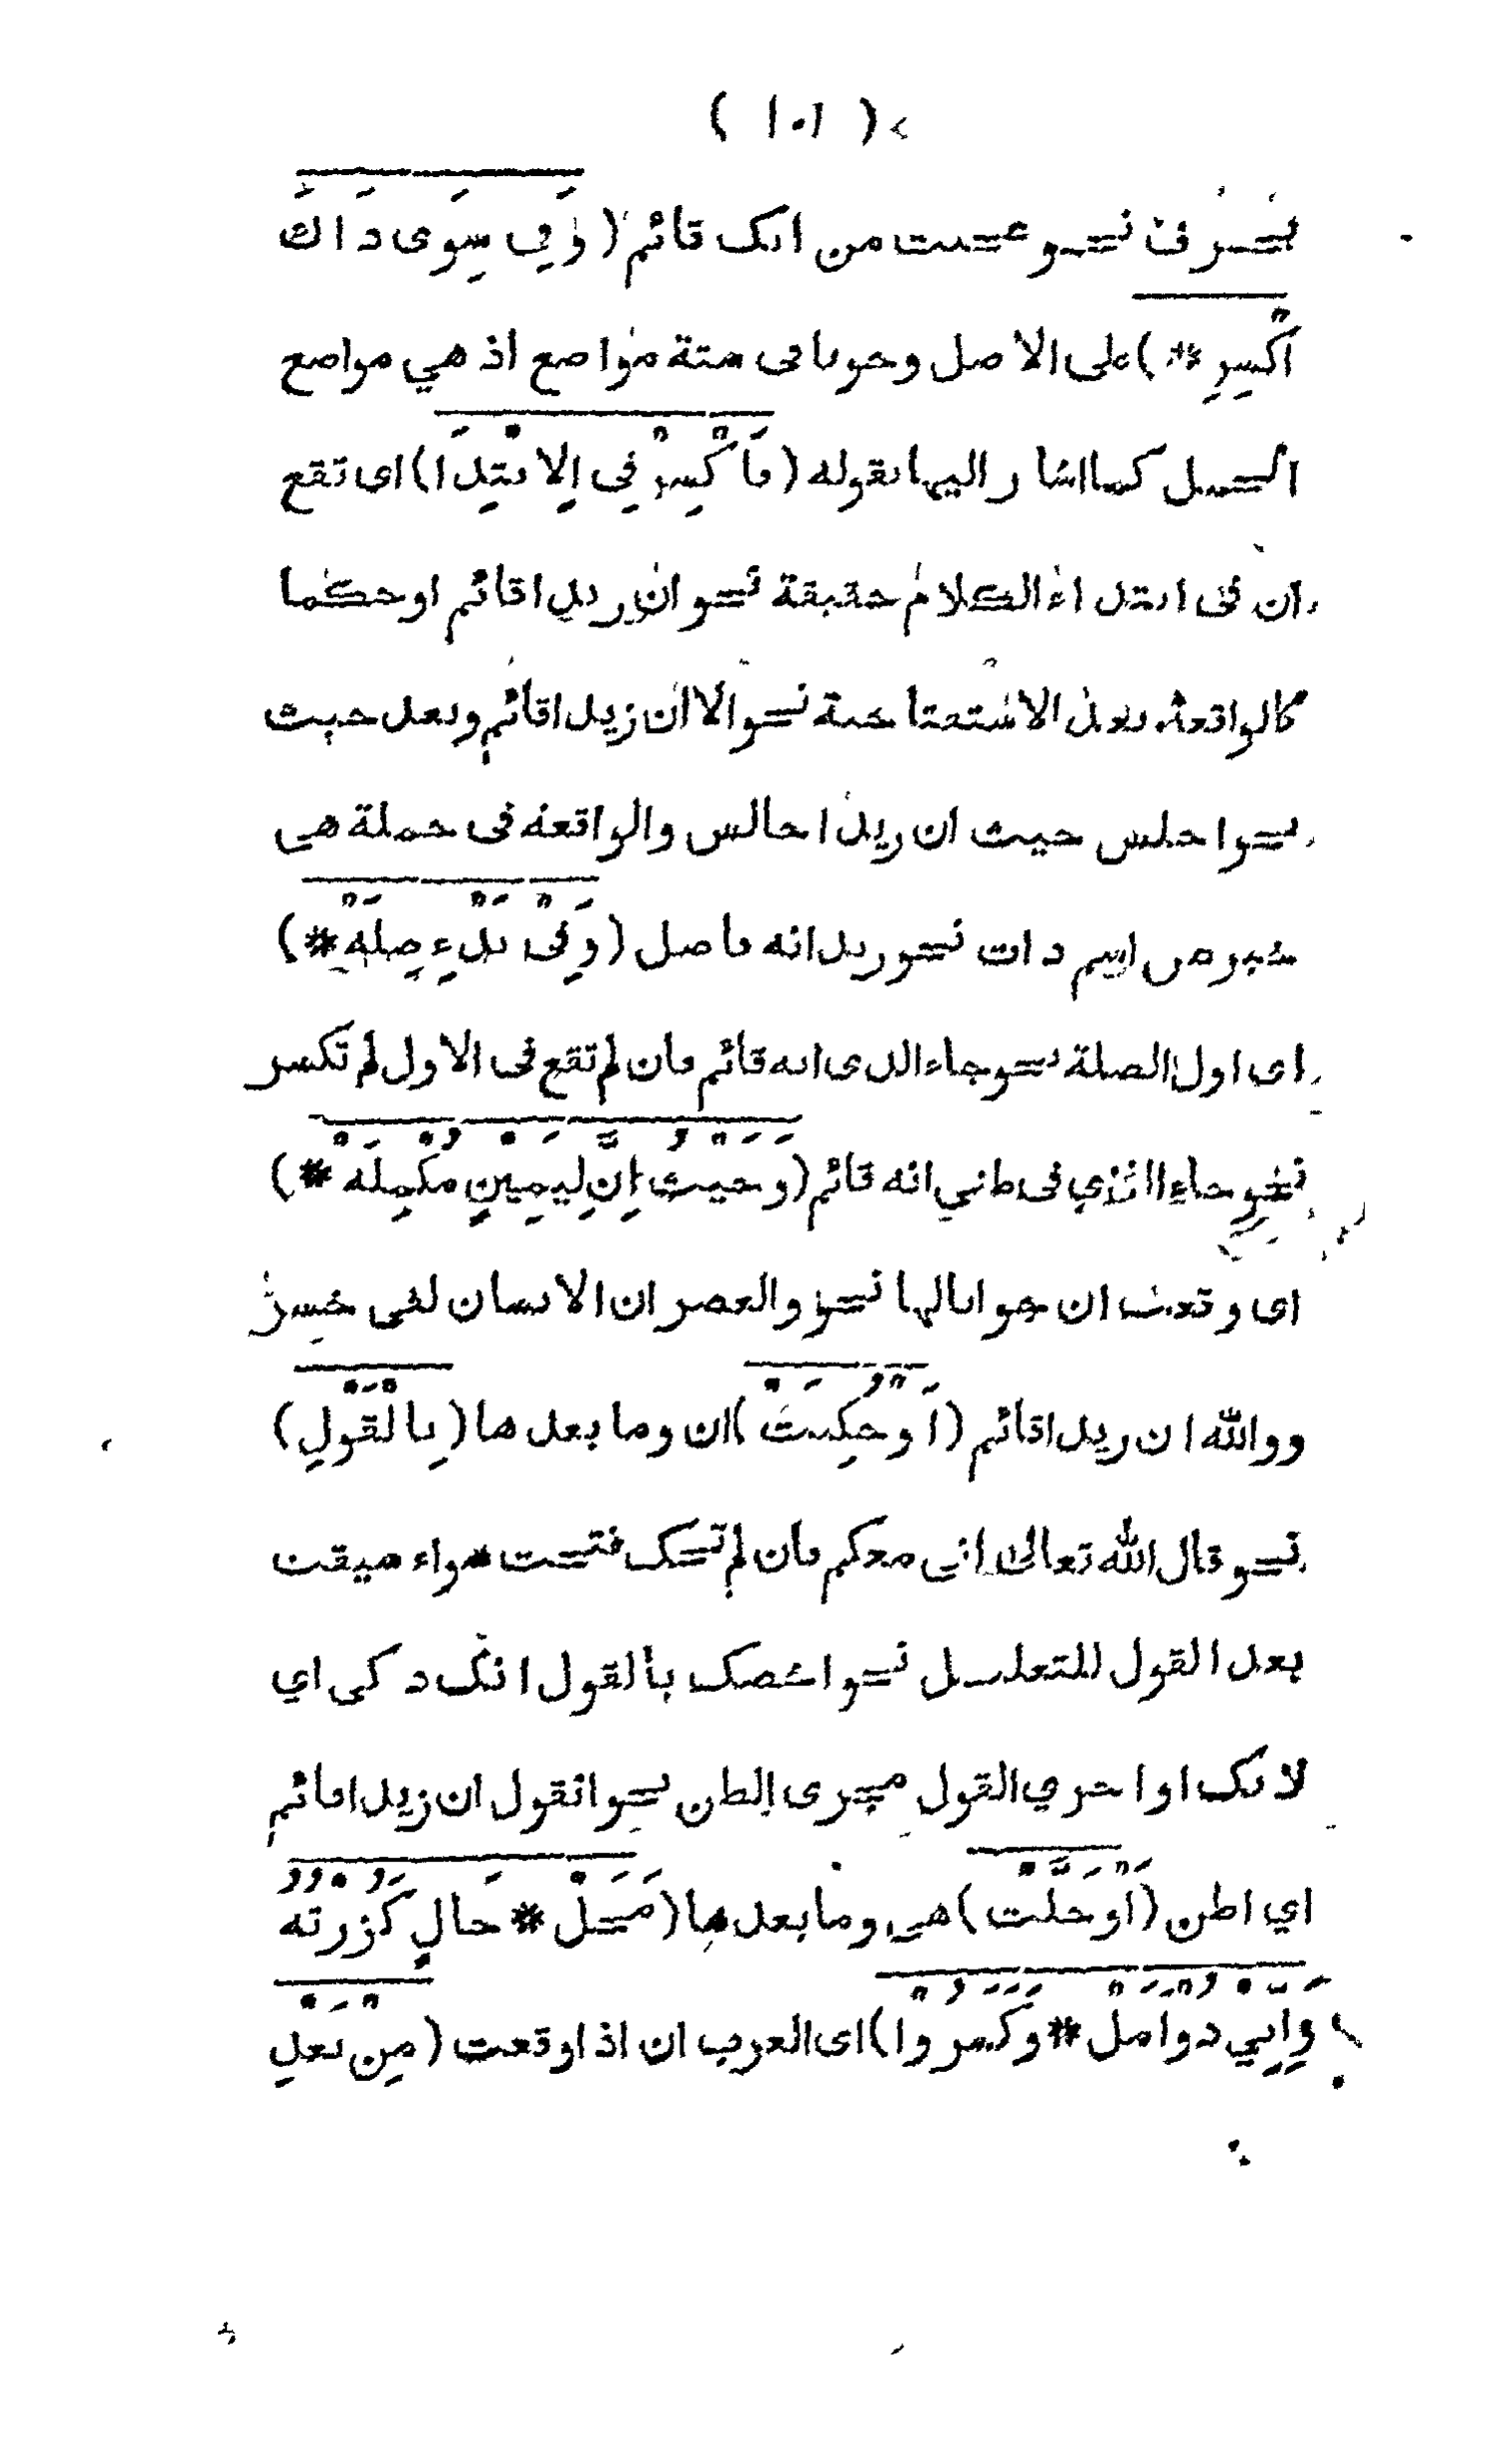 ( ١٠١ )
بحرف نحو عجبت من انك قائم ( وَفِي سِوَى ذَاكَ
اكْسِرِ * ) على الاصل وجوبا فى ستة مواضع اذ هي مواضع
الجمل كما اشار اليها بقوله ( فَاكْسِرْ فِي الِابْتِدَا ) اى تقع
ان فى ابتداء الكلام حقيقة نحو ان زيدا قائم او حكما
كالواقعة بعد الاستفتاحية نحو الا ان زيدا قائم وبعد حيث
نحو اجلس حيث ان زيدا جالس والواقعة فى جملة هى
خبر عن اسم ذات نحو زيد انه فاضل ( وَفِيْ بَدْءِ صِلَهْ * )
اى اول الصلة نحو جاء الذى انه قائم فان لم تقع فى الاول لم تكسر
نحو جاء الذي فى ظني انه قائم ( وَحَيْثُ اِنَّ لِيَمِيْنٍ مُكْمِلَهْ * )
اى وقعت ان جوابا لها نحو والعصر ان الانسان لفى خسر
ووالله ان زيدا قائم ( اَوْ حُكِيَتْ ) ان وما بعدها ( بِالْقَوْلِ )
نحو قال الله تعالى انى معكم فان لم تحك فتحت سواء سيقت
بعد القول للتعليل نحو اخصك بالقول انك ذكى اي
لانك او اجري القول مجرى الظن نحو اتقول ان زيدا قائم
اي اظن ( اَوْ حَلَّتْ ) هى وما بعدها ( مَحَلَّ * حَالٍ كَزُرْتُهُ
وَاِنِّي ذُوْ اَمَلْ * وَكَسَرُوْا ) اى العرب ان اذا وقعت ( مِنْ بَعْدِ